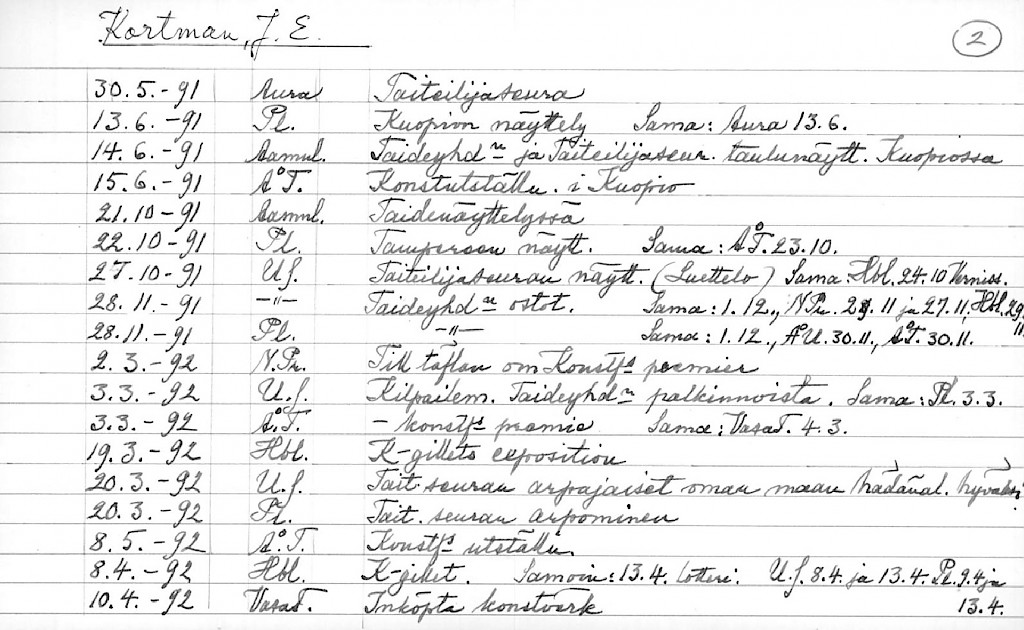 Kortman, J. E. 2
30.5.-91 Aura Taiteilijaseura
13.6.-91 Pl. Kuopion näyttely Sama: Aura 13.6.
14.6.-91 Aamul. Taideyhd:n ja Taiteilijaseur. taulunäytt. Kuopiossa
15.6.-91 Å.T. Konstutställn. i Kuopio
21.10-91 Aamul. Taidenäyttelyssä
22.10-91 Pl. Tampereen näytt. Sama: Å.T. 23.10.
27.10-91 U.S. Taiteilijaseuran näytt. (Luettelo) Sama: Hbl. 24.10 Verniss.
28.11-91 -"- Taideyhd:n ostot. Sama: 1.12., N.Pr. 11 ja 27.11, Hbl. 29.11
28.11.-91 Pl. -"- Sama: 1.12., Å.U. 30.11., Å.T. 30.11.
2.3.-92 N.Pr. Till taflan om Konstf:s premier
3.3.-92 U.S. Kilpailem. Taideyhd:n palkinnoista. Sama: Pl. 3.3.
3.3.-92 Å.T. - konstf:s premie Sama: VasaT. 4.3.
19.3.-92 Hbl. K-gillets exposition
20.3.-92 U.S. Tait. seuran arpajaiset oman maan hädänal. hyväksi
20.3.-92 Pl. Tait. seuran arpominen
8.5.-92 Å.T. Konstf:s utställn.
8.4.-92 Hbl. K-gillet. Samoin: 13.4. lotteri. U.S. 8.4. ja 13.4. Pl. 9.4 ja 13.4.
10.4.-92 VasaT. Inköpta konstverk